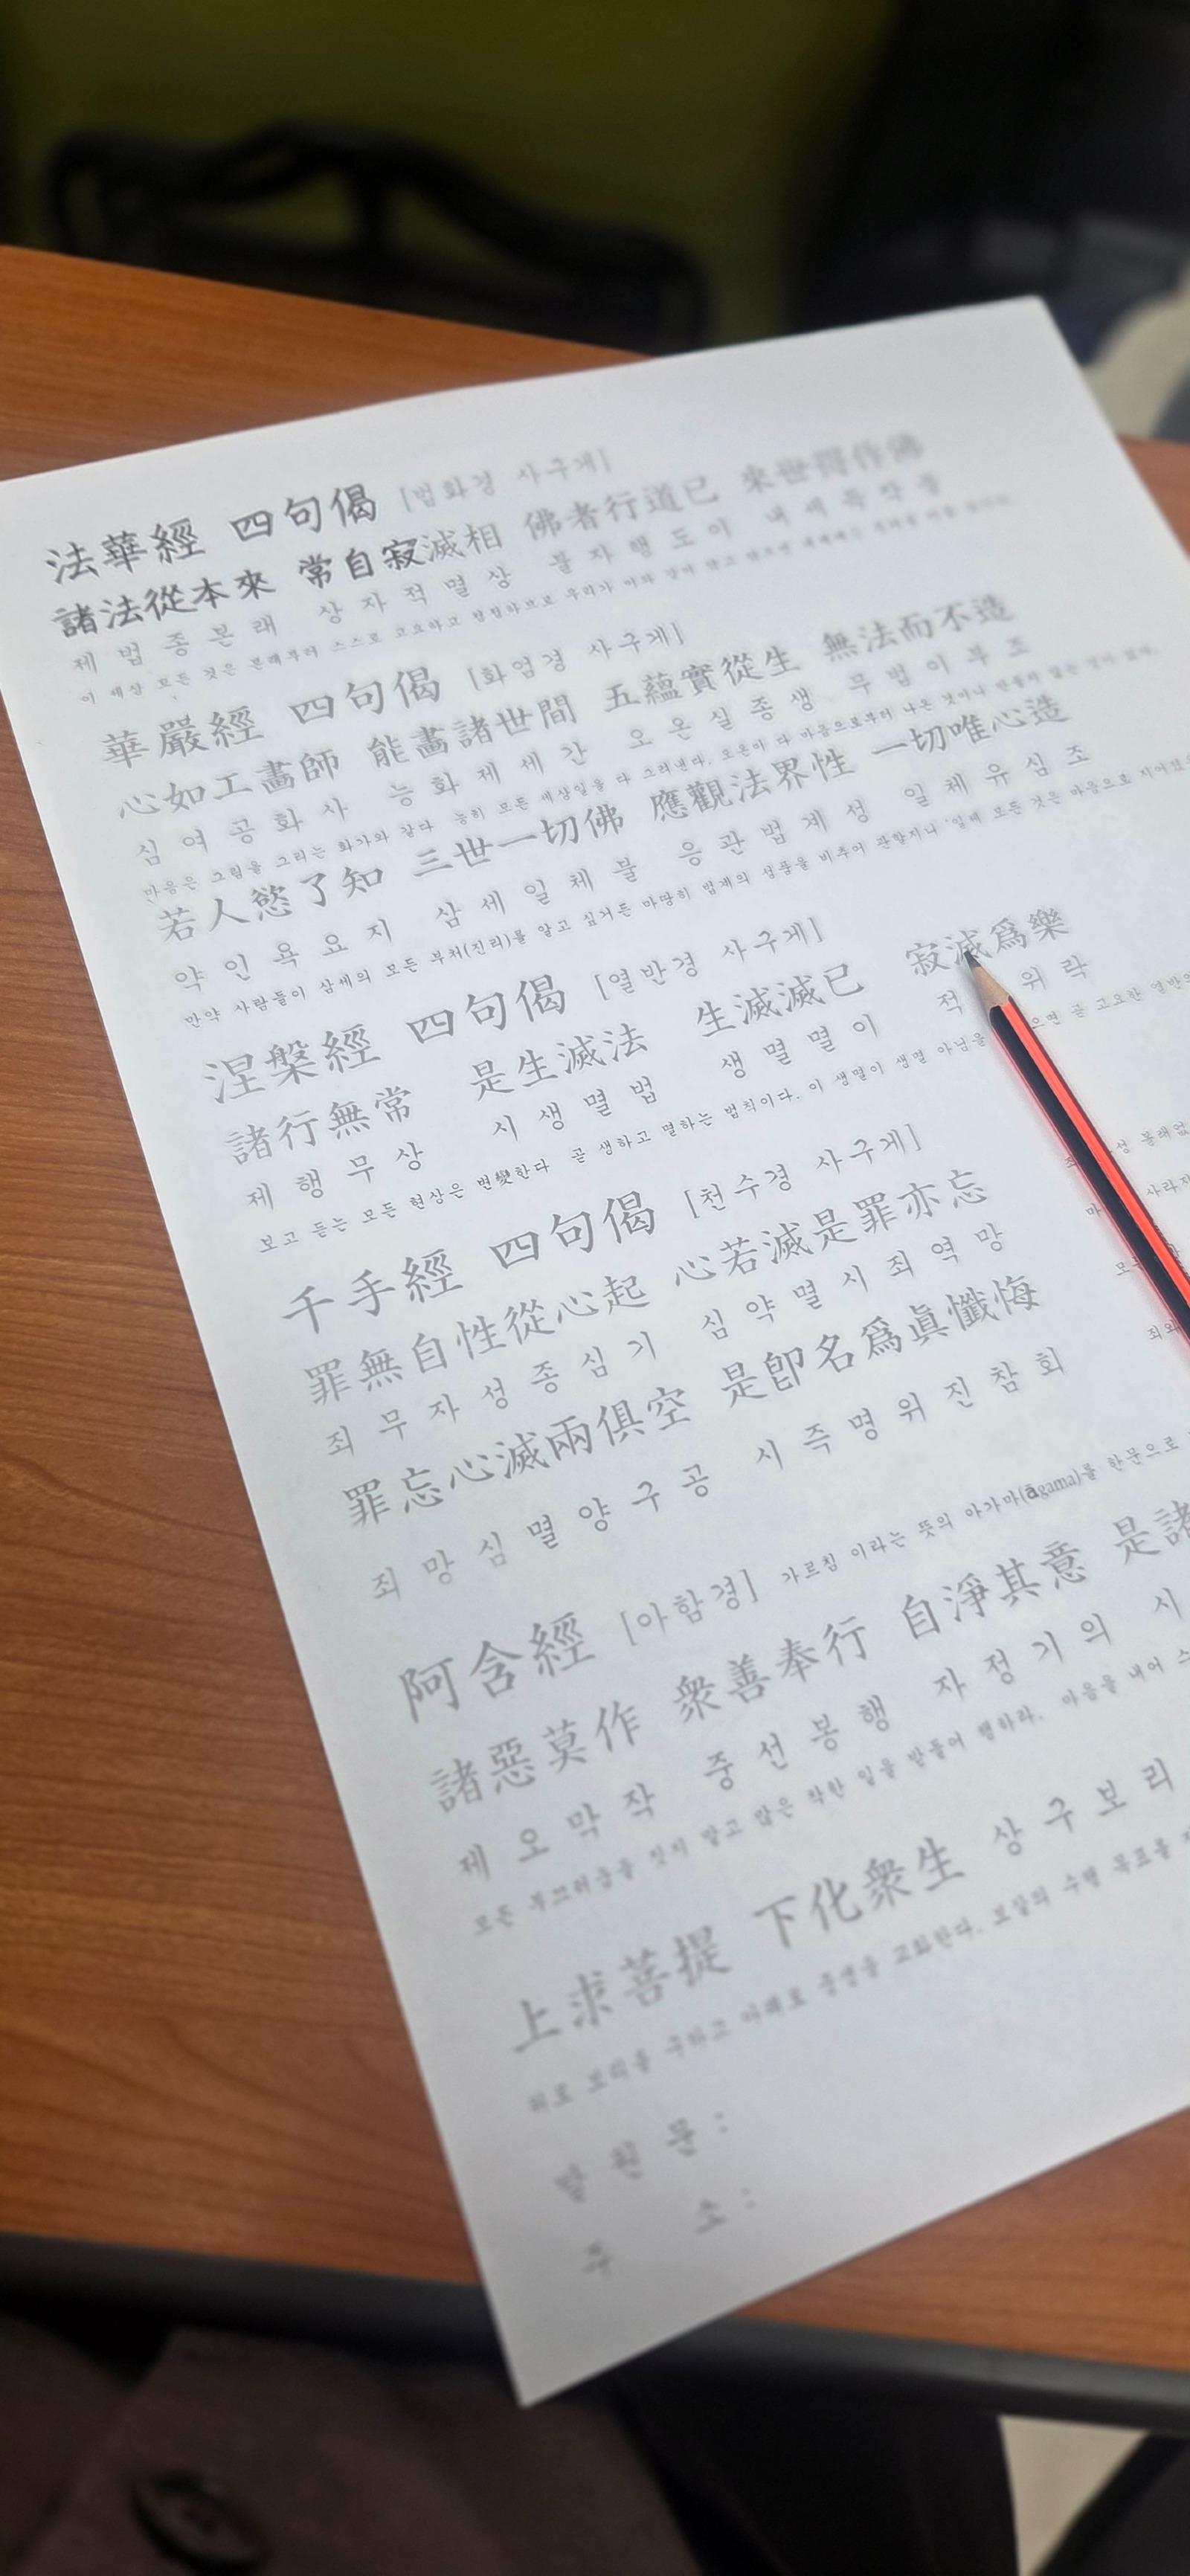 法華經 四句偈 [법화경 사구게]
諸法從本來 常自寂滅相 佛者行道已 來世得作佛
제법종본래 상자적멸상 불자행도이 내세득작불
이 세상 모든 것은 본래부터 스스로 고요하고 청정하므로 우리가 이와 같이 알고
華嚴經 四句偈 [화엄경 사구게]
心如工畵師 能畵諸世間 五蘊實從生 無法而不造
심여공화사 능화제세간 오온실종생 무법이부조
마음은 그림을 그리는 화가와 같다 능히 모든 세상일을 다 그려낸다. 오온이 다 마음으로부터 나온 것이니 만들지 않는 것이 없다.
若人慾了知 三世一切佛 應觀法界性 一切唯心造
약인욕요지 삼세일체불 응관법계성 일체유심조
만약 사람들이 삼세의 모든 부처(진리)를 알고 싶거든 마땅히 법계의 성품을 비추어 관할지니 '일체 모든 것은 마음으로
涅槃經 四句偈 [열반경 사구게]
諸行無常 是生滅法 生滅滅已 寂滅爲樂
제행무상 시생멸법 생멸멸이 적 위락
보고 듣는 모든 현상은 변變한다 곧 생하고 멸하는 법칙이다. 이 생멸이 생멸 아님을 으면 곧 고요한 열반의
千手經 四句偈 [천수경 사구게]
罪無自性從心起 心若滅是罪亦忘
죄무자성종심기 심약멸시죄역망
罪忘心滅兩俱空 是卽名爲眞懺悔
죄망심멸양구공 시즉명위진참회
阿含經 [아함경] 가르침 이라는 뜻의 아가마(āgama)를 한문으로
諸惡莫作 衆善奉行 自淨其意 是諸
제오막작 중선봉행 자정기의 시
모든 부끄러움을 짓지 말고 많은 착한 일을 받들어 행하라. 마음을 내어
上求菩提 下化衆生 상구보리
위로 보리를 구하고 아래로 중생을 교화한다. 보살의 수행 목표를
발원문 :
주소 :